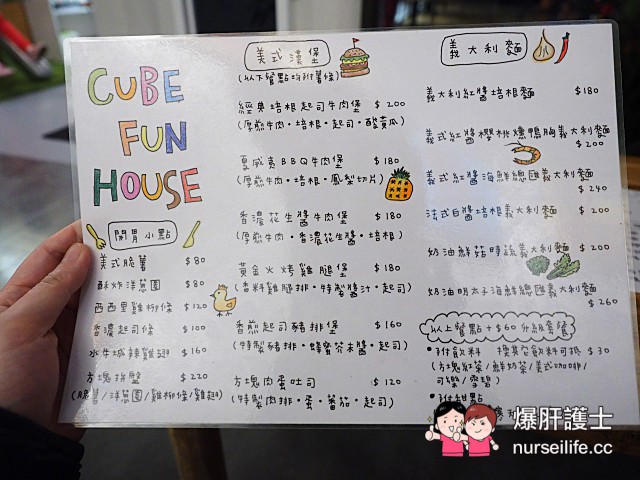 CUBE
FUN
HOUSE
開胃小點
美式脆薯 $80
酥炸洋蔥圈 $80
西西里雞柳條 $120
香濃起司條 $100
水牛城辣雞翅 $160
方塊拼盤 $220
(脆薯/洋蔥圈/雞柳條/雞翅)
美式漢堡
(以下餐點均附薯條)
經典培根起司牛肉堡 $200
(厚煎牛肉・培根・起司・酸黃瓜)
夏威夷BBQ牛肉堡 $180
(厚煎牛肉・培根・鳳梨切片)
香濃花生醬牛肉堡 $180
(厚煎牛肉・香濃花生醬・培根)
黃金火烤雞腿堡 $180
(香料雞腿排・特製醬汁・起司)
香煎起司豬排堡 $160
(特製豬排・蜂蜜芥末醬・起司)
方塊肉蛋吐司 $120
(特製肉排・蛋・番茄・起司)
義大利麵
義大利紅醬培根麵 $180
義式紅醬櫻桃燻鴨胸義大利麵
$200
義式紅醬海鮮總匯義大利麵
$240
法式白醬培根義大利麵 $200
奶油鮮菇時蔬義大利麵 $200
奶油明太子海鮮總匯義大利麵
$260
以上餐點+$60升級套餐
・附飲料 換其它飲料可抵$30
(方塊紅茶/鮮奶茶/美式咖啡/
可樂/雪碧)
・附甜點
爆肝護士
nurseilife.cc